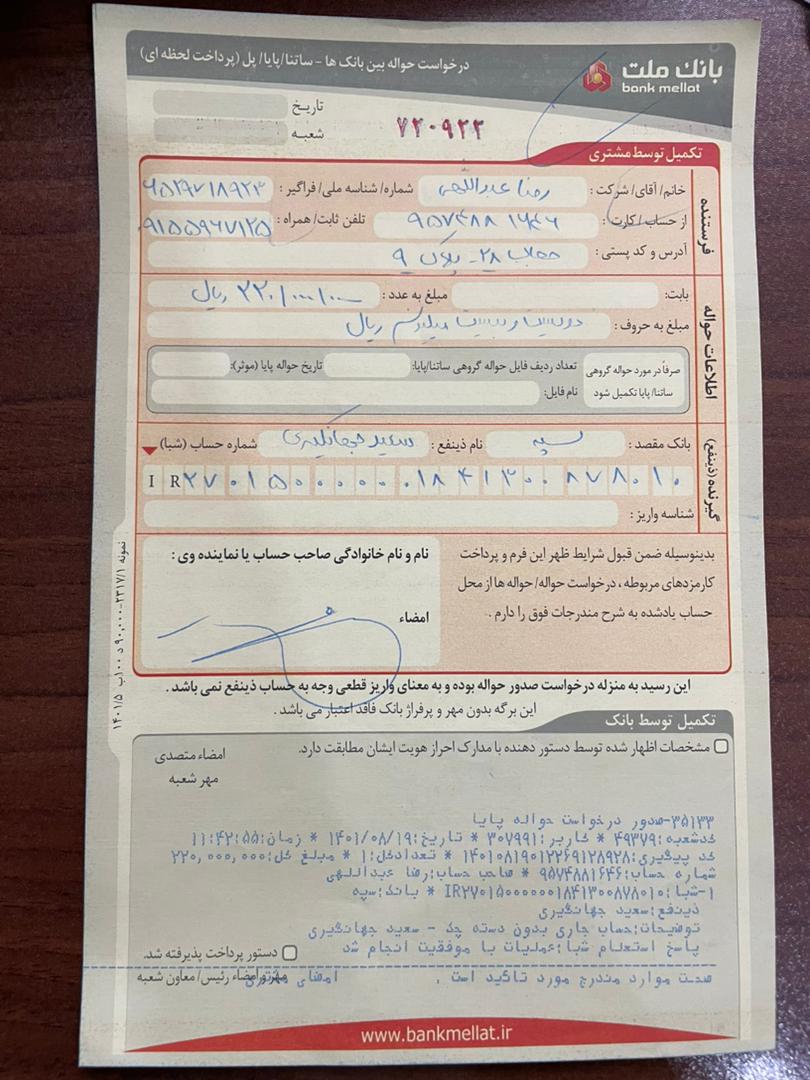 بانک ملت
bank mellat
درخواست حواله بین بانک ها - ساتنا/پایا/ پل (پرداخت لحظه ای)
تاریخ
شعبه
۷۲۰۹۲۲
تکمیل توسط مشتری
فرستنده
خانم/ آقای/ شرکت : رضا عبداللهی شماره/ شناسه ملی/ فراگیر :
از حساب/ کارت : ۹۵۷۴۸۸۱۶۴۶ تلفن ثابت/ همراه : ۹۱۵۵۹۶۷۱۲۵
آدرس و کد پستی : ۲۸- پلاک ۹
اطلاعات حواله
بابت : مبلغ به عدد : ۲۲۰/۰۰۰/۰۰۰ ریال
مبلغ به حروف : دویست و بیست میلیون ریال
صرفاً در مورد حواله گروهی ساتنا/ پایا تکمیل شود
تعداد ردیف فایل حواله گروهی ساتنا/پایا: تاریخ حواله پایا (موثر):
نام فایل:
گیرنده (ذینفع)
بانک مقصد : سپه نام ذینفع : سعید جهانگیری شماره حساب (شبا)
IR۲۷۰۱۵۰۰۰۰۰۰۱۸۴۱۳۰۰۸۷۸۰۱۰
شناسه واریز :
بدینوسیله ضمن قبول شرایط ظهر این فرم و پرداخت
کارمزدهای مربوطه ، درخواست حواله/ حواله ها از محل
حساب یادشده به شرح مندرجات فوق را دارم .
نام و نام خانوادگی صاحب حساب یا نماینده وی :
امضاء
این رسید به منزله درخواست صدور حواله بوده و به معنای واریز قطعی وجه به حساب ذینفع نمی باشد .
این برگه بدون مهر و پرفراژ بانک فاقد اعتبار می باشد .
تکمیل توسط بانک
مشخصات اظهار شده توسط دستور دهنده با مدارک احراز هویت ایشان مطابقت دارد.
امضاء متصدی
مهر شعبه
۳۵۱۳۳-صدور درخواست حواله پایا
کدشعبه:۴۹۳۷۹ * کاربر:۳۰۷۹۹۱ * تاریخ:۱۴۰۱/۰۸/۱۹ * زمان:۱۱:۴۲:۵۵
کد پیگیری:۱۴۰۱۰۸۱۹۰۱۲۲۶۹۱۲۸۹۲۸ * تعدادکل:۱ * مبلغ کل:۲۲۰,۰۰۰,۰۰۰
شماره حساب:۹۵۷۴۸۸۱۶۴۶ * صاحب حساب:رضا عبداللهی
۱-شبا:IR۲۷۰۱۵۰۰۰۰۰۰۱۸۴۱۳۰۰۸۷۸۰۱۰ * بانک:سپه
ذینفع:سعید جهانگیری
توضیحات:حساب جاری بدون دسته چک - سعید جهانگیری
پاسخ استعلام شبا:عملیات با موفقیت انجام شد
دستور پرداخت پذیرفته شد.
صحت موارد مندرج مورد تاکید است . امضای مشتری
مهر و امضاء رئیس/ معاون شعبه
www.bankmellat.ir
نمونه ۲۳۱۷/۱-۹۰,۰۰۰ د ۱۰۰ب ۱۴۰۱/۵